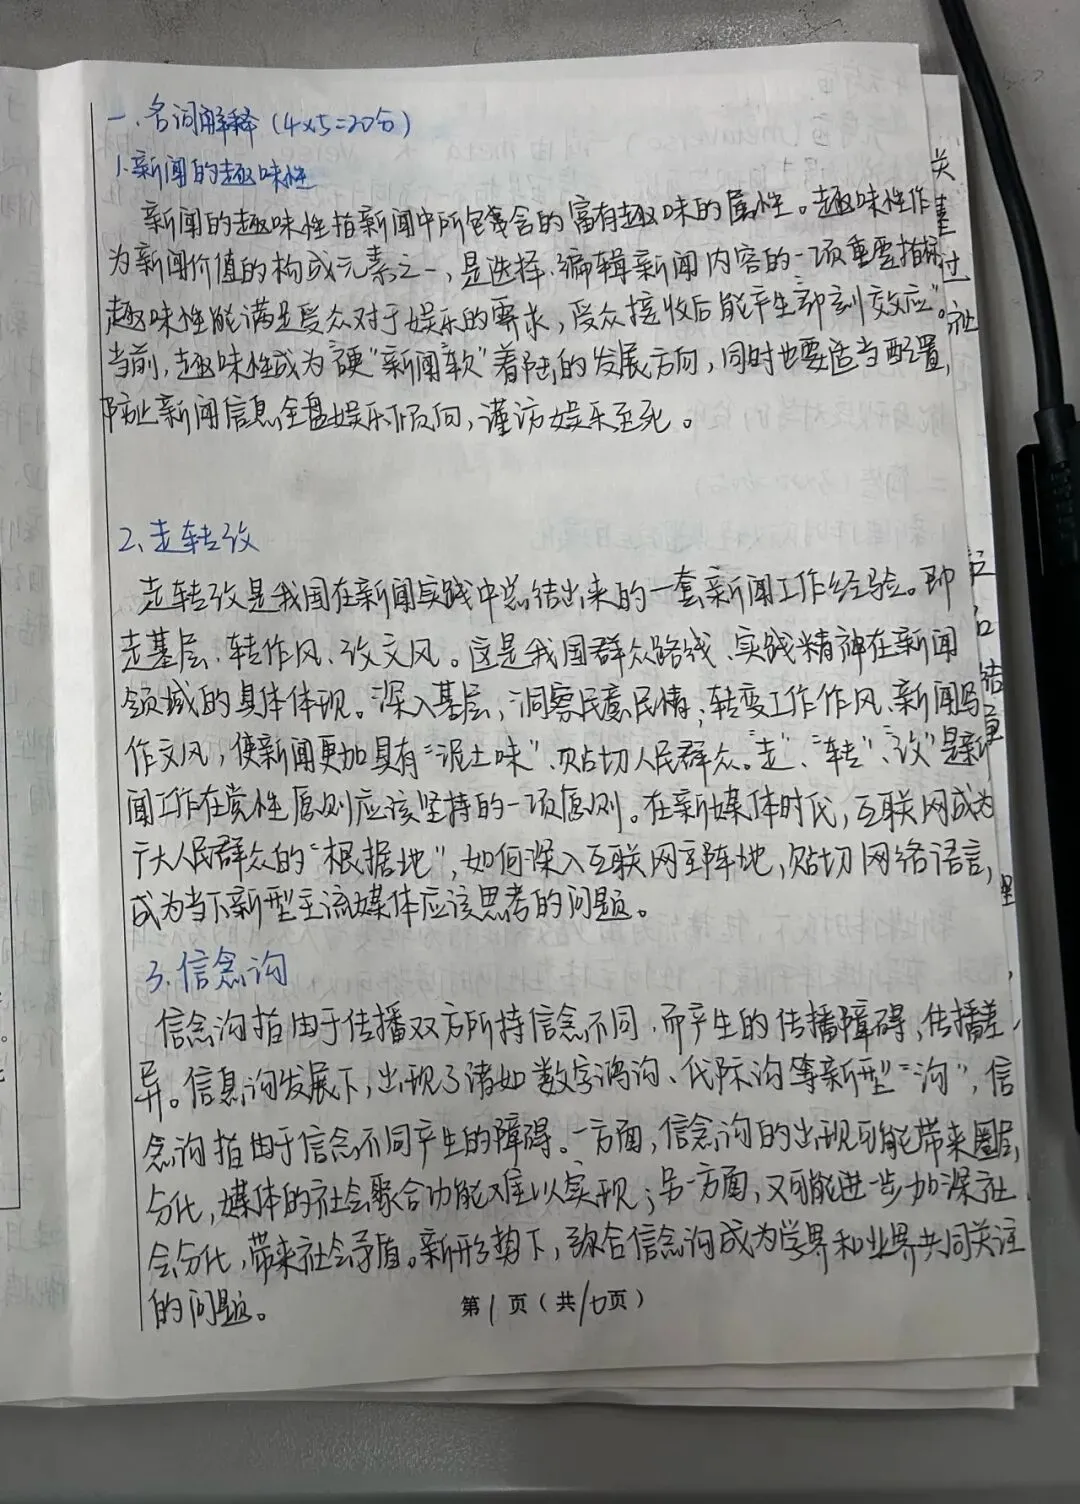 一.名词解释(4×5=20分)
1.新闻的趣味性
新闻的趣味性指新闻中所包含的富有趣味的属性。趣味性作
为新闻价值的构成元素之一,是选择、编辑新闻内容的一项重要指标
趣味性能满足受众对于娱乐的需求,受众接收后能产生即刻交效应”。
当前,趣味性成为“硬”新闻“软”着陆的发展方向,同时也要适当配置,
防止新闻信息全盘娱乐倾向,谨防娱乐至死。
2、走转改
走转改是我国在新闻实践中总结出来的一套新闻工作经验。即
走基层、转作风、改文风。这是我国群众路线、实践精神在新闻
领域的具体体现。深入基层,洞察民意民情;转变工作作风、新闻写
作文风,使新闻更加具有“泥土味”、贴切人民群众。“走”、“转”、“改”是新
闻工作在党性原则应该坚持的一项原则。在新媒体时代,互联网成为
广大人民群众的“根据地”,如何深入互联网主阵地,贴切网络语言,
成为当下新型主流媒体应该思考的问题。
3.信念沟
信念沟指由于传播双方所持信念不同,而产生的传播障碍、传播差
异。信息沟发展下,出现了诸如数字鸿沟、代际沟等新型“沟”,信
念沟指由于信念不同产生的障碍。一方面,信念沟的出现可能带来圈层
分化,媒体的社会聚合功能难以实现;另一方面,又可能进一步加深社
会分化,带来社会矛盾。新形势下,弥合信念沟成为学界和业界共同关注
的问题。
第1页(共10页)